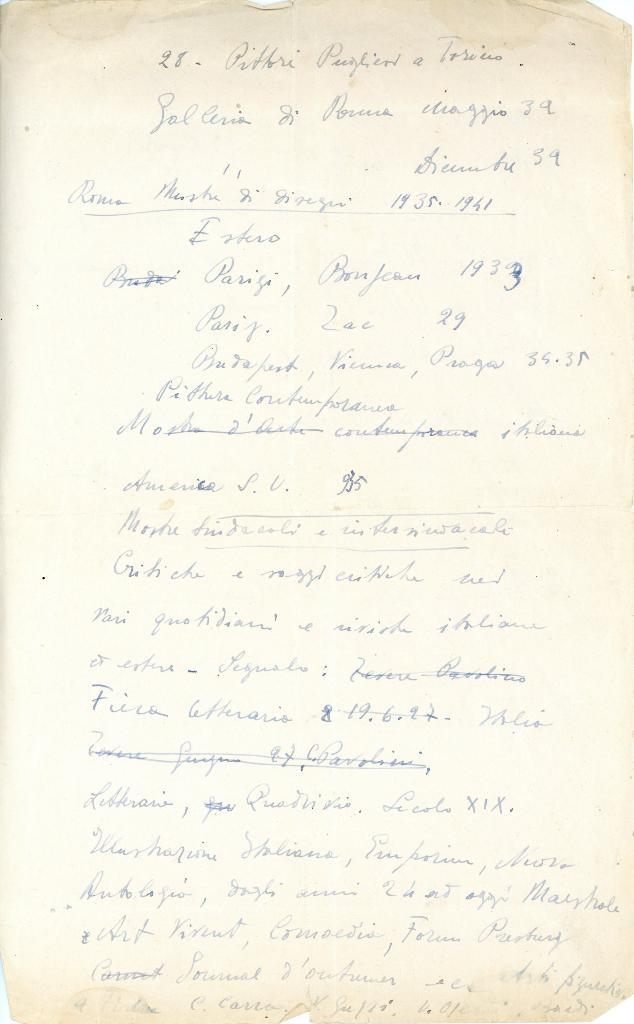 28 - Pittori Pugliesi a Torino.
Galleria di Roma Maggio 39
Dicembre 39
Roma Mostre di disegni 1935-1941
Estero
Buda Parigi, Bonjean 1933
Parig. Zac 29
Budapest, Vienna, Praga 34-35
Pittura Contemporanea
Mostra d'Arte contemporanea italiana
America S. U. 35
Mostre sindacali e intersindacali
Critiche e saggi critiche nei
vari quotidiani e riviste italiane
ed estere - Segnalo: Tevere Pavolino
Fiera letteraria 19.6.27 - Italia
Tevere Giugno 27 C. Pavolini,
Letteraria, Quadrivio. Secolo XIX.
Illustrazione Italiana, Emporium, Nuova
Antologia, dagli anni 24 ad oggi Maestrale
Art Vivent, Comoedia, Forum Presburg
Carnet Journal d'
C. Carrà.